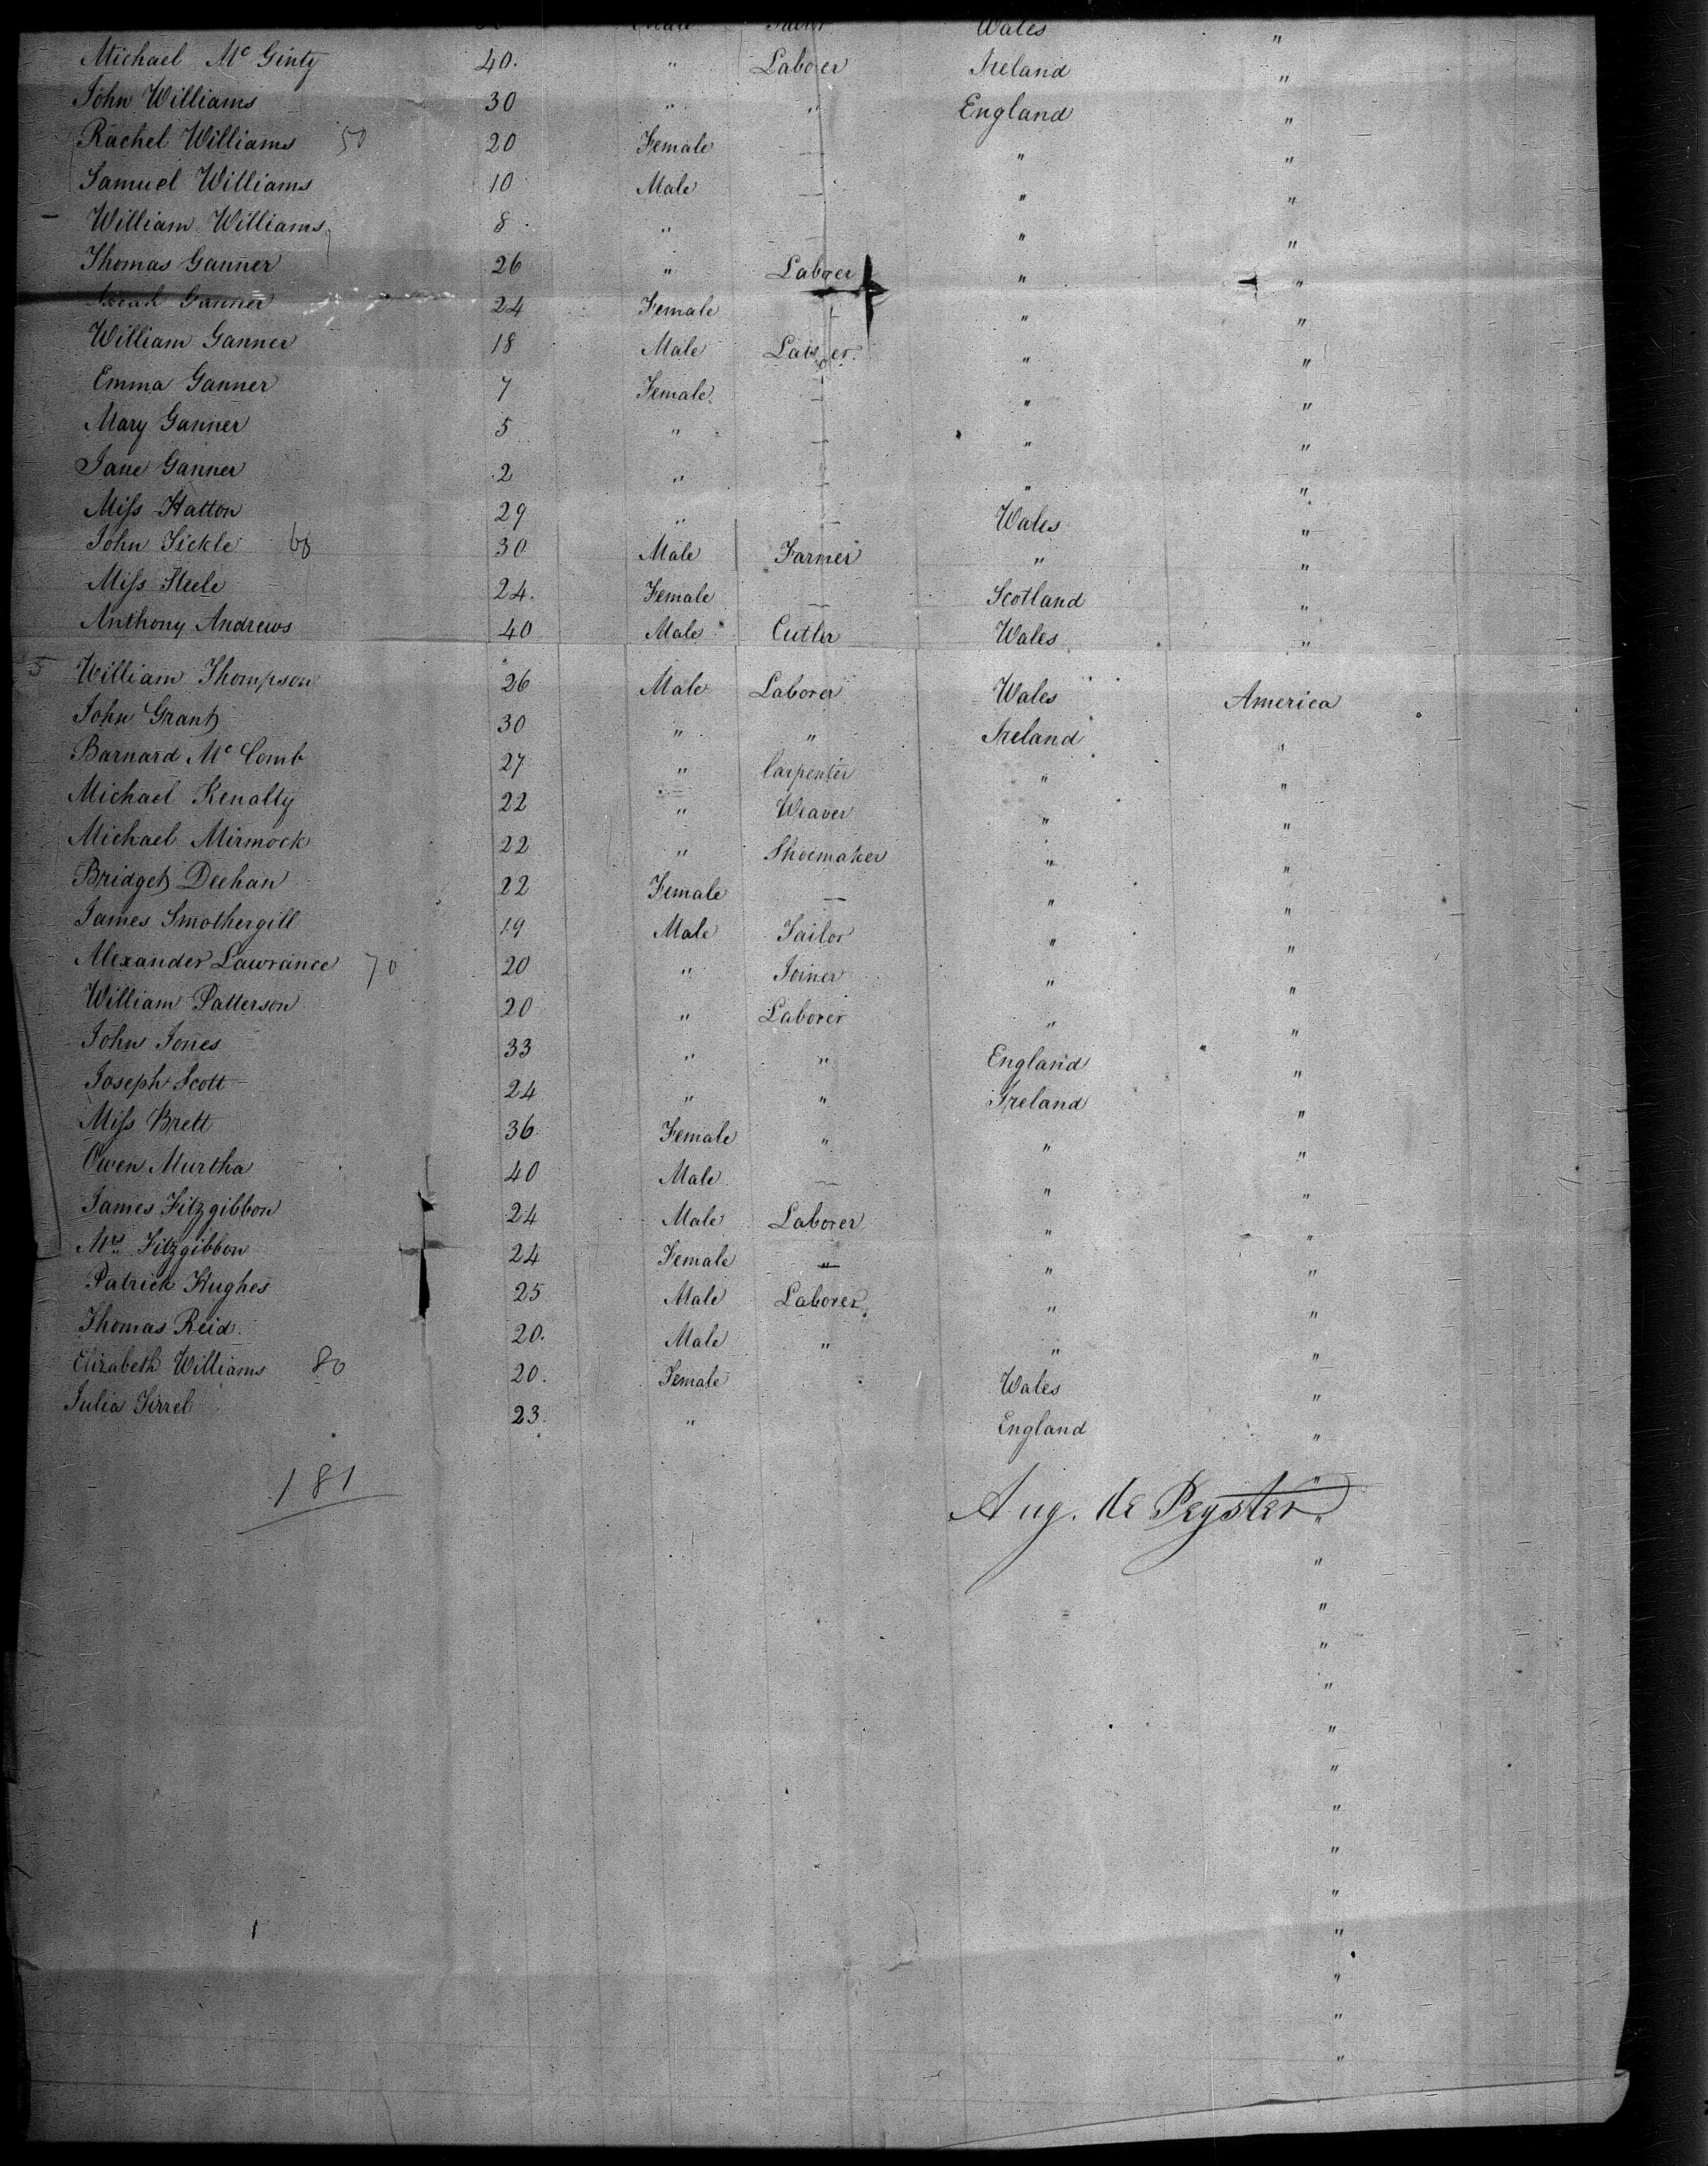 Wales "
Michael Mc Ginty 40. " Laborer Ireland "
John Williams 30 " " England "
Rachel Williams 50 20 Female — " "
Samuel Williams 10 Male — " "
William Williams 8 " — " "
Thomas Ganner 26 " Laborer " "
Ganner 24 Female — " "
William Ganner 18 Male Laborer " "
Emma Ganner 7 Female — " "
Mary Ganner 5 " — " "
Jane Ganner 2 " — " "
Miss Hatton 29 " — Wales "
John Sickle 60 30 Male Farmer " "
Miss Steele 24. Female — Scotland "
Anthony Andrews 40 Male Cutler Wales "
5 William Thompson 26 Male Laborer Wales America
John Grant 30 " " Ireland "
Barnard Mc Comb 27 " Carpenter " "
Michael Kenalty 22 " Weaver " "
Michael Mirmock 22 " Shoemaker " "
Bridget Deehan 22 Female — " "
James Smothergill 19 Male Tailor " "
Alexander Lawrance 70 20 " Joiner " "
William Patterson 20 " Laborer " "
John Jones 33 " " England "
Joseph Scott 24 " " Ireland "
Miss Brett 36 Female " " "
Owen Murtha 40 Male — " "
James Fitzgibbon 24 Male Laborer " "
Mrs Fitzgibbon 24 Female " " "
Patrick Hughes 25 Male Laborer " "
Thomas Reid. 20. Male " " "
Elizabeth Williams 80 20. Female Wales "
Julia Tirrel 23. " England "
181 "
Aug. de Peyster "
"
"
"
"
"
"
"
"
"
"
"
"
"